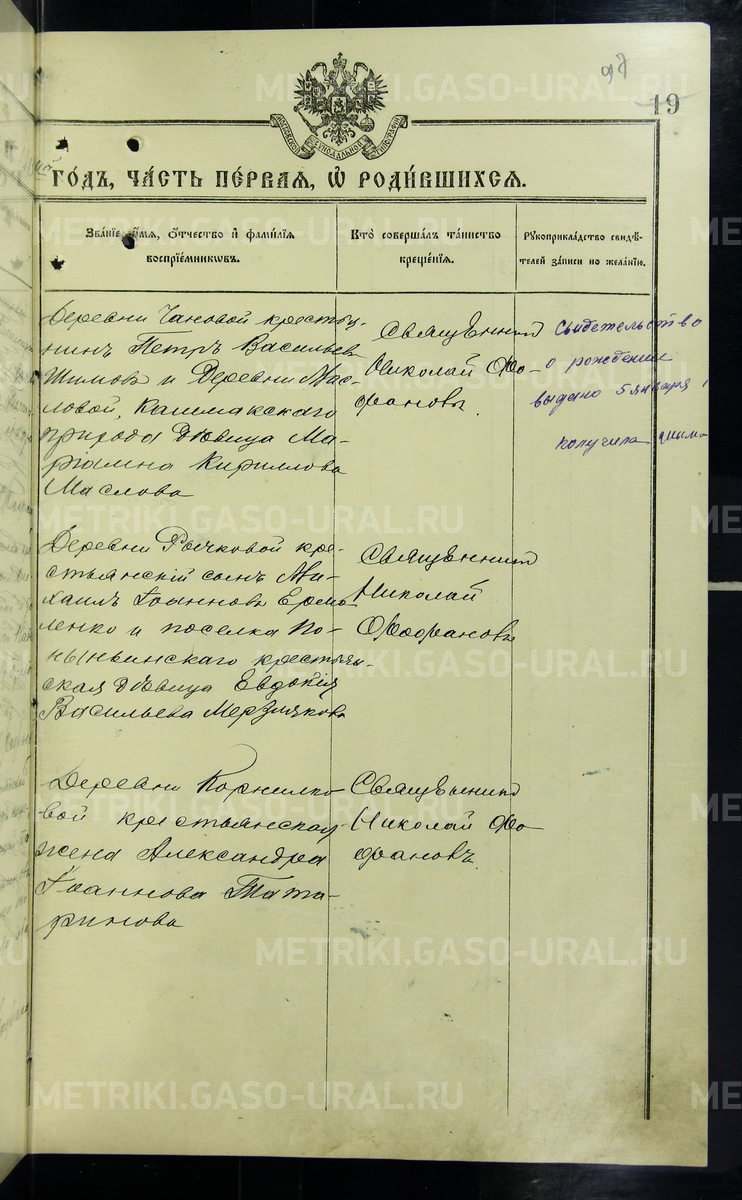 97
19
МОСКОВСКОЙ СѴНОДАЛЬНОЙ ТИПОГРАФІИ
ГО́ДЪ, ЧА́СТЬ ПЕ́РВАЯ, Ѡ҆ РОДИ́ВШИХСЯ.
Зва́нїе, и҆́мя, ѻ҆́тчество и҆ фами́лїя
воспрїе́мникωвъ.
Кто̀ соверша́лъ та́инство
креще́нїя.
Рꙋкоприкла́дство свидѣ́-
телей за́писи по жела́нїю.
Деревни Чановой крестья-
нинъ Петръ Васильевъ
Шимовъ и Деревни Мас-
ловой, Калмакскаго
прихода дѣвица Ма-
ріамна Кириллова
Маслова
Священникъ
Николай Фео-
фановъ.
Свидетельство
о рождении
выдано 5 января
получила
Деревни Рычковой кре-
стьянскій сынъ Ми-
хаилъ Іоанновъ Ермо
ленко и поселка
крестьян-
ская дѣвица Евдокія
Васильева Мерзлякова
Священникъ
Николай
Феофановъ
Деревни Корнилко-
вой крестьянская
жена Александра
Іоаннова Тата-
ринова
Священникъ
Николай Фео-
фановъ.
METRIKI.GASO-URAL.RU